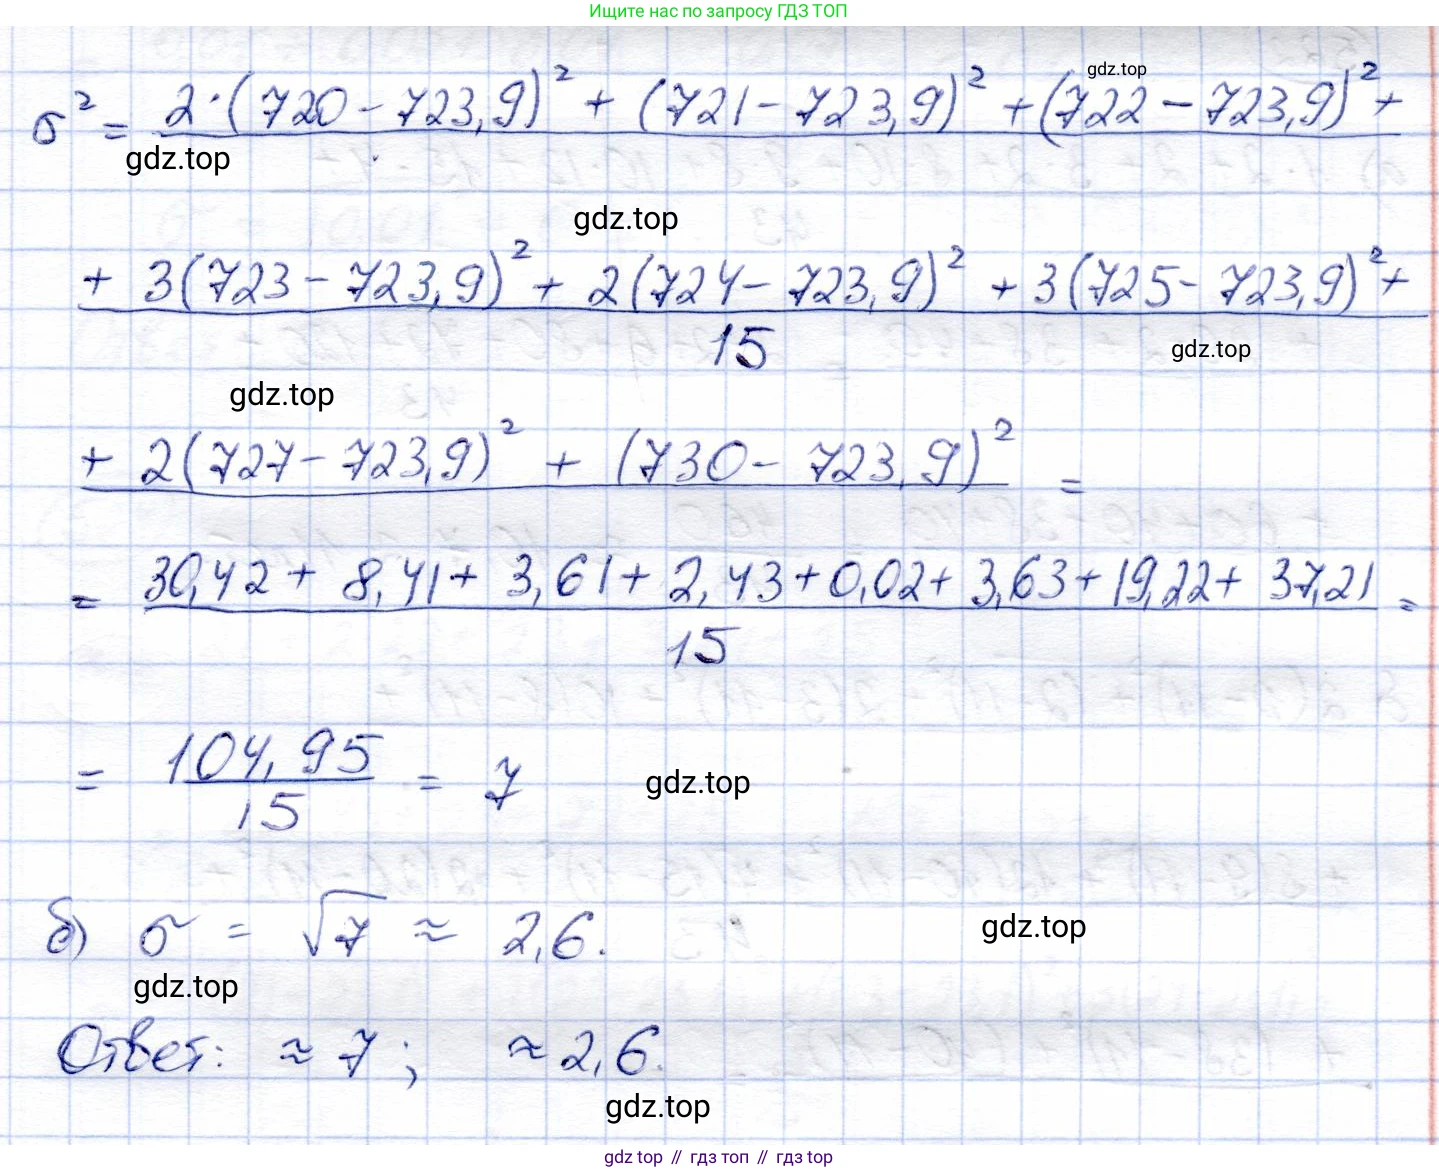 Ищите нас по запросу ГДЗ ТОП
gdz.top
σ² = 2·(720 - 723,9)² + (721 - 723,9)² + (722 - 723,9)² +
gdz.top
gdz.top
+ 3(723 - 723,9)² + 2(724 - 723,9)² + 3(725 - 723,9)² +
15
gdz.top
gdz.top
+ 2(727 - 723,9)² + (730 - 723,9)² =
= 30,42 + 8,41 + 3,61 + 2,43 + 0,02 + 3,63 + 19,22 + 37,21 =
15
= 104,95 = 7
15
gdz.top
б) σ = √7 ≈ 2,6.
gdz.top
gdz.top
Ответ: ≈ 7; ≈ 2,6.
gdz.top
gdz top // гдз топ // гдз top